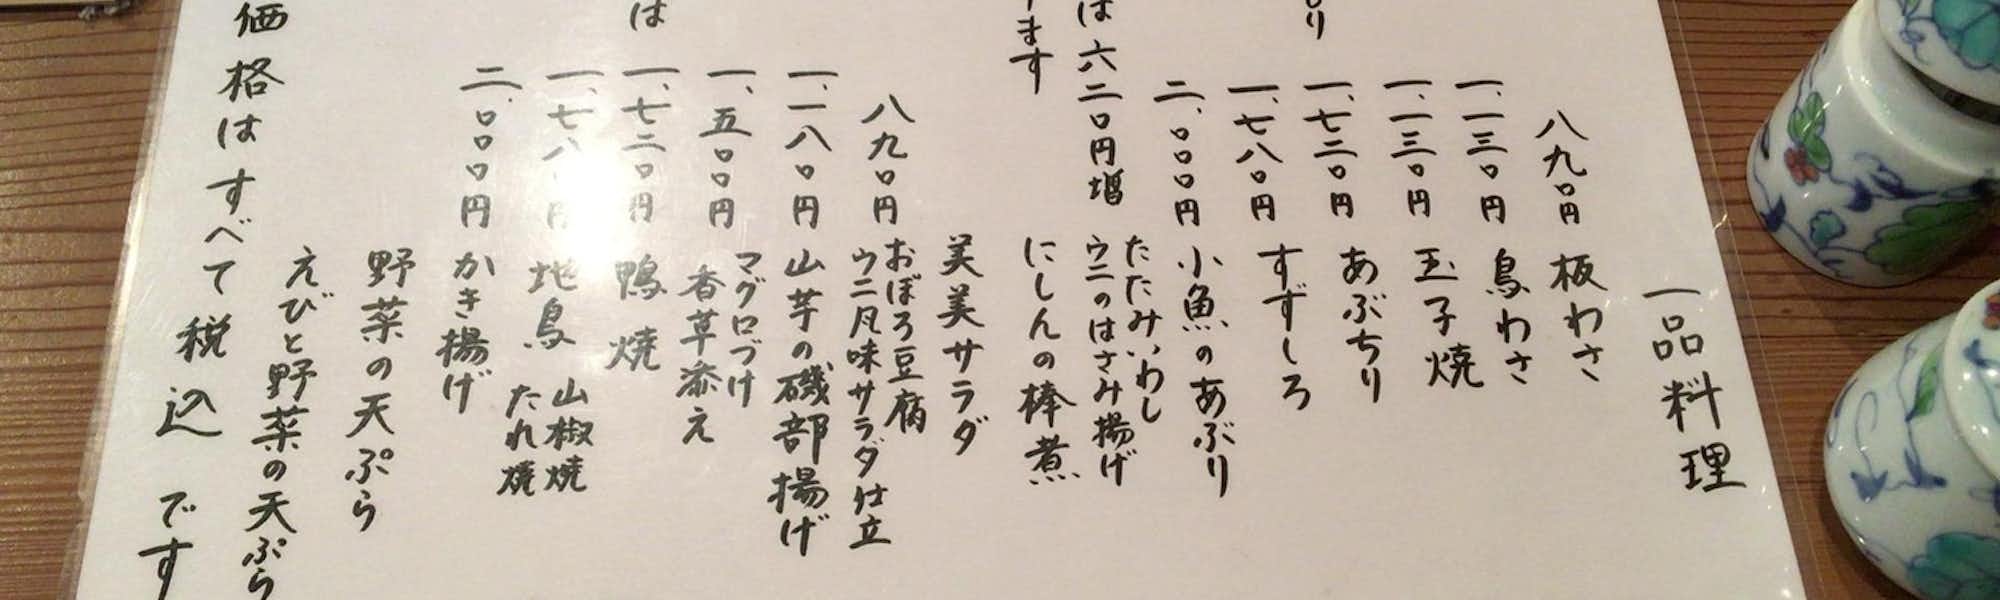 八九〇円
一、一三〇円
一、一三〇円
り
一、七二〇円
一、七八〇円
二、〇〇〇円
は六二〇円増
ます
八九〇円
一、一八〇円
一、五〇〇円
は
一、七二〇円
二、〇〇〇円
一品料理
板わさ
鳥わさ
玉子焼
あぶちり
すずしろ
小魚のあぶり
たたみいわし
ウニのはさみ揚げ
にしんの棒煮
美美サラダ
おぼろ豆腐
ウニ風味サラダ仕立
山芋の磯部揚げ
マグロづけ
香草添え
鴨焼
地鳥 山椒焼
たれ焼
かき揚げ
野菜の天ぷら
えびと野菜の天ぷら
価格はすべて税込です